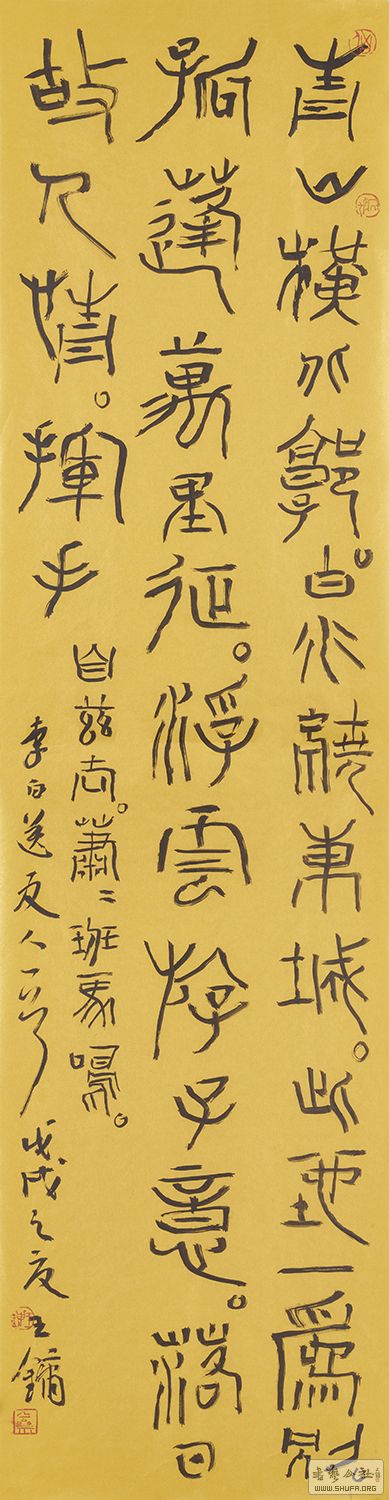 青山橫北郭。白水繞東城。此地一為別。
孤蓬萬里征。浮雲游子意。落日
故人情。揮手
自茲去。蕭〻班馬鳴。
李白送友人一首 戊戌之夏 王鏞
書藝公社
WWW.SHUFA.ORG